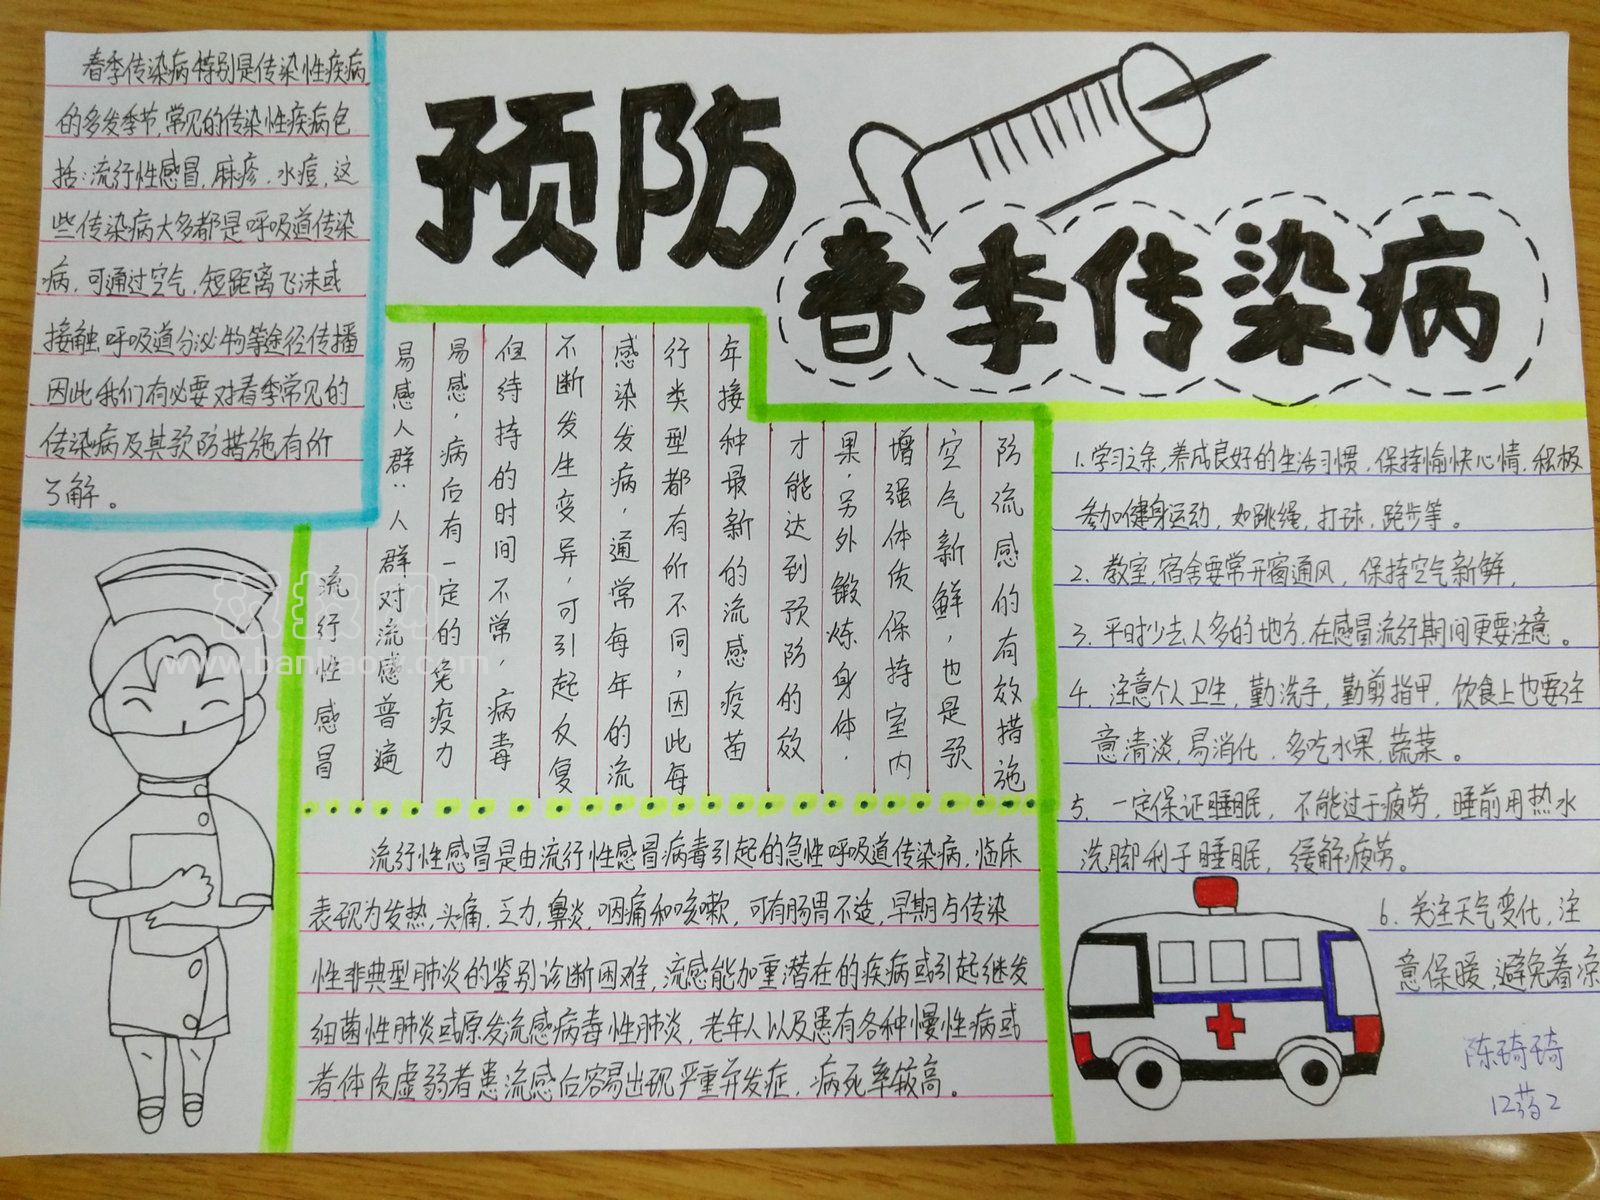 预防
春季传染病
春季传染病特别是传染性疾病
的多发季节,常见的传染性疾病包
括:流行性感冒,麻疹.水痘,这
些传染病大多都是呼吸道传染
病,可通过空气,短距离飞沫或
接触呼吸道分泌物等途径传播
因此我们有必要对春季常见的
传染病及其预防措施有所
了解。
流行性感冒
易感人群:人群对流感普遍
易感,病后有一定的免疫力
但待持的时间不常,病毒
不断发生变异,可引起反复
感染发病,通常每年的流
行类型都有所不同,因此每
年接种最新的流感疫苗
才能达到预防的效
果.另外锻炼身体.
增强体质保持室内
空气新鲜,也是预
防流感的有效措施
流行性感冒是由流行性感冒病毒引起的急性呼吸道传染病,临床
表现为发热,头痛.乏力,鼻炎,咽痛和咳嗽,可有肠胃不适,早期与传染
性非典型肺炎的鉴别诊断困难,流感能加重潜在的疾病或引起继发
细菌性肺炎或原发流感病毒性肺炎,老年人以及患有各种慢性病或
者体质虚弱者患流感后容易出现严重并发症,病死率较高。
1.学习之余,养成良好的生活习惯,保持愉快心情,积极
参加健身运动,如跳绳,打球,跑步等。
2.教室,宿舍要常开窗通风,保持空气新鲜,
3.平时少去人多的地方.在感冒流行期间更要注意。
4.注意个人卫生,勤洗手,勤剪指甲,饮食上也要注
意清淡,易消化.多吃水果,蔬菜。
5.一定保证睡眠,不能过于疲劳,睡前用热水
洗脚利于睡眠,缓解疲劳。
6.关注天气变化,注
意保暖,避免着凉
陈琦琦
12药2
板报网
www.banbaow.com